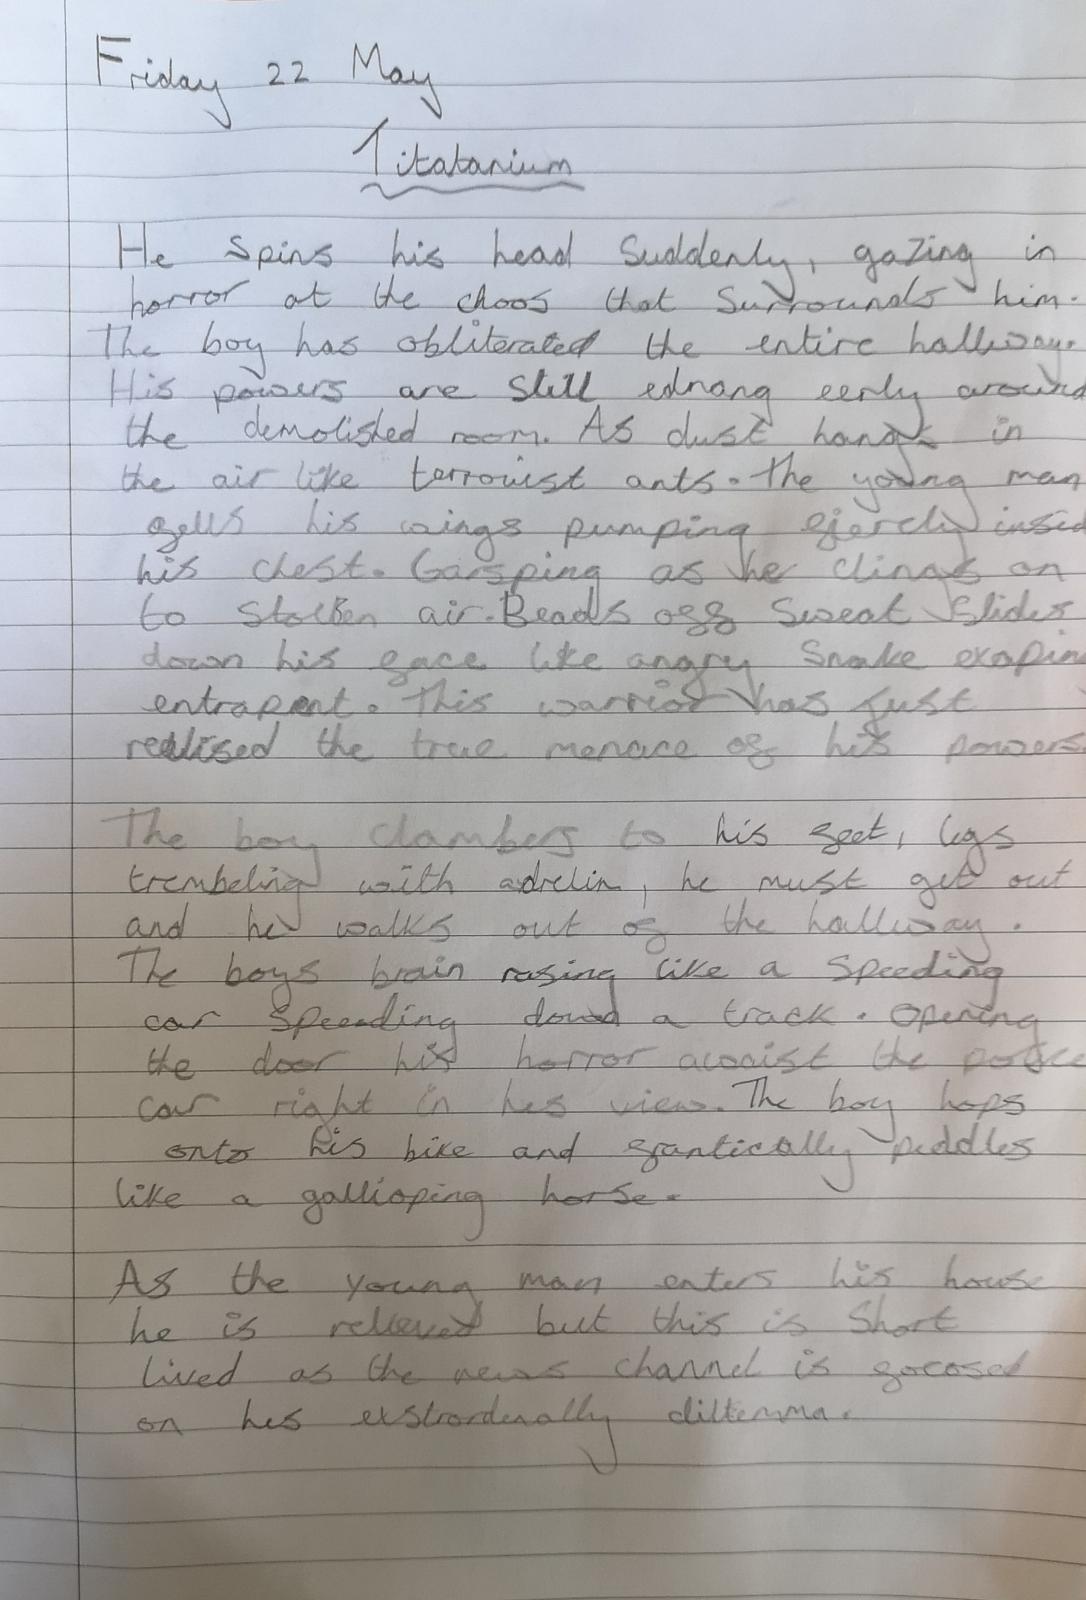 Friday 22 May
Titatanium
He spins his head suddenly, gazing in
horror at the choos that surrounds him.
The boy has obliterated the entire hallway.
His powers are still ednang eerly around
the demolished room. As dust hangs in
the air like terrouist ants. The young man
fells his wings pumping fiercly insid
his chest. Garsping as he clings on
to stolben air. Beads off sweat slides
down his face like angry snake exapin
entrapent. This warrior has just
realised the true menace of his powers.
The boy clambers to his feet, legs
trembeling with adrelin, he must get out
and he walks out of the hallway.
The boys brain rasing like a speeding
car speending down a track. Opening
the door his horror acoaist the police
car right in hes view. The boy hops
onto his bike and frantically peddles
like a gallioping horse.
As the young man enters his house
he is relieved but this is short
lived as the news channel is focosed
on hes exstrordenally diltemma.